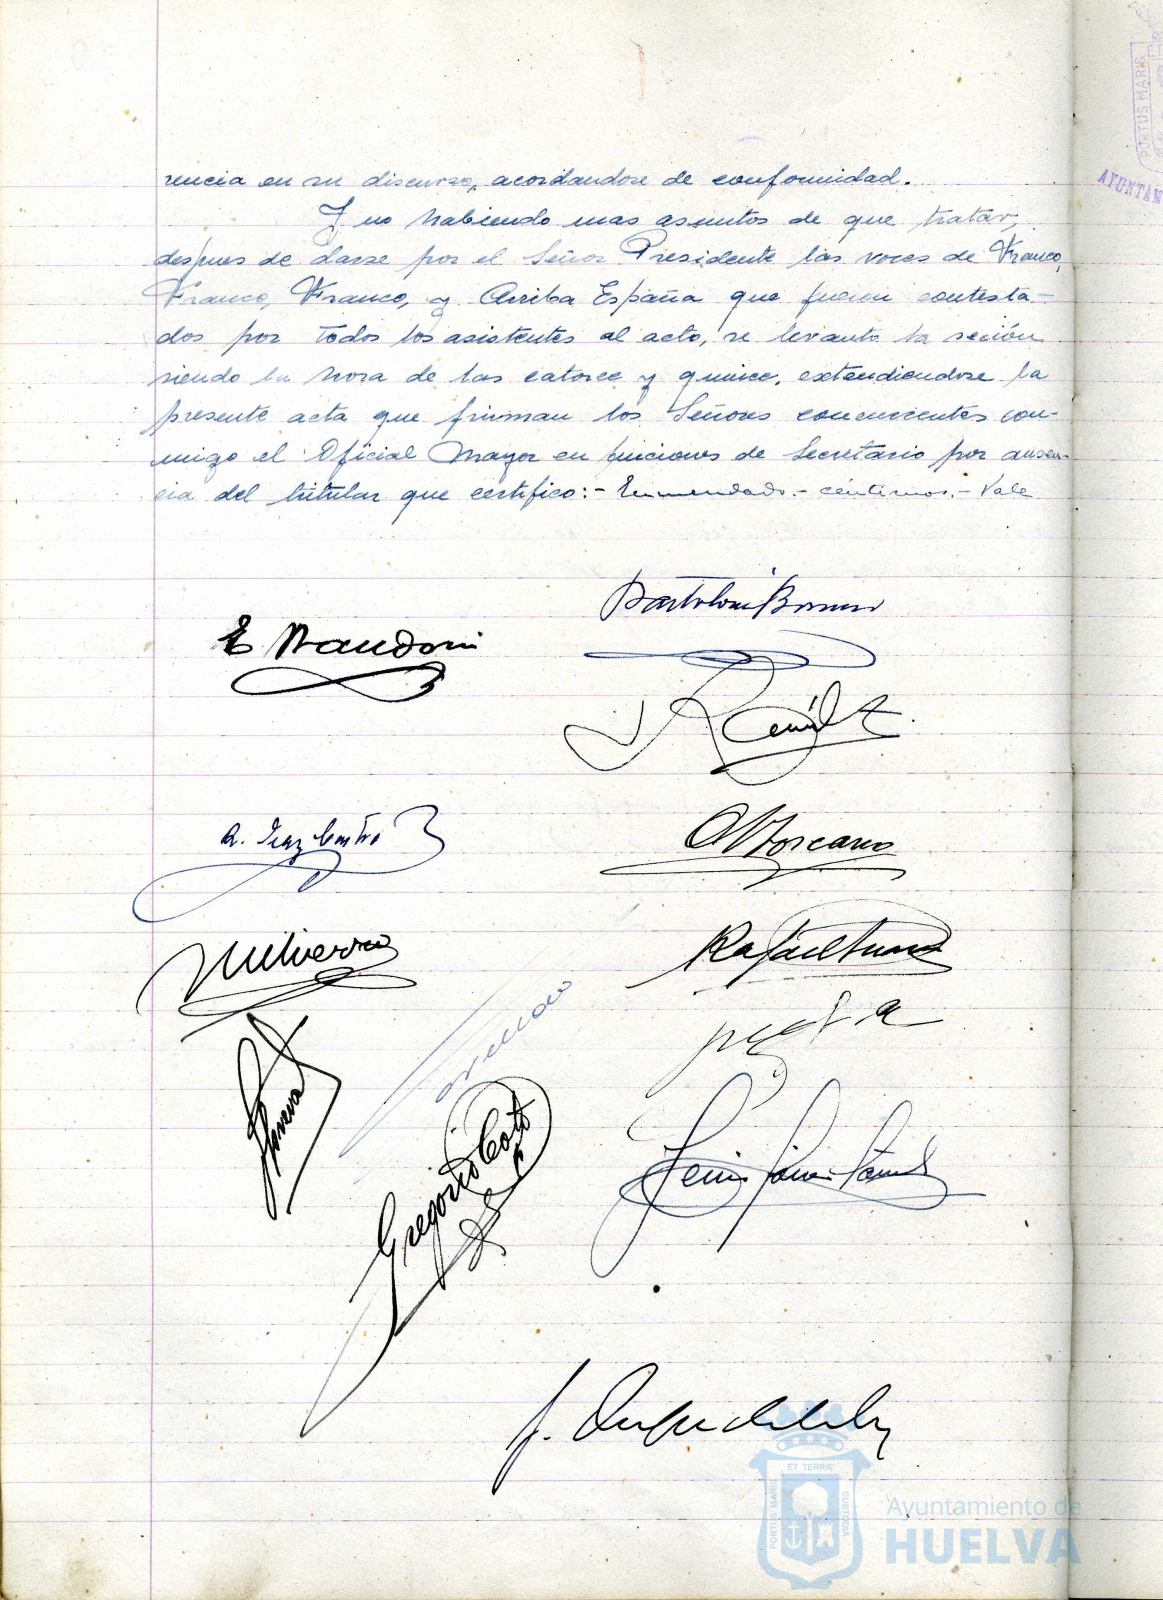 rencia en su discurso, acordandose de conformidad.
Y no habiendo mas asuntos de que tratar,
despues de darse por el Señor Presidente las voces de Franco,
Franco, Franco, y Arriba España que fueron contesta-
dos por todos los asistentes al acto, se levanto la seción
siendo la hora de las catorce y quince, extendiendose la
presente acta que firman los Señores concurrentes con-
migo el Oficial Mayor en funciones de Secretario por ausen-
cia del titular que certifico:- Enmendado.- centimos.- Vale
Rafael
Gregorio Coto
PORTUS MARIS
AYUNTAM
PORTUS MARIS ET TERRÆ CUSTODIA
Ayuntamiento de
HUELVA